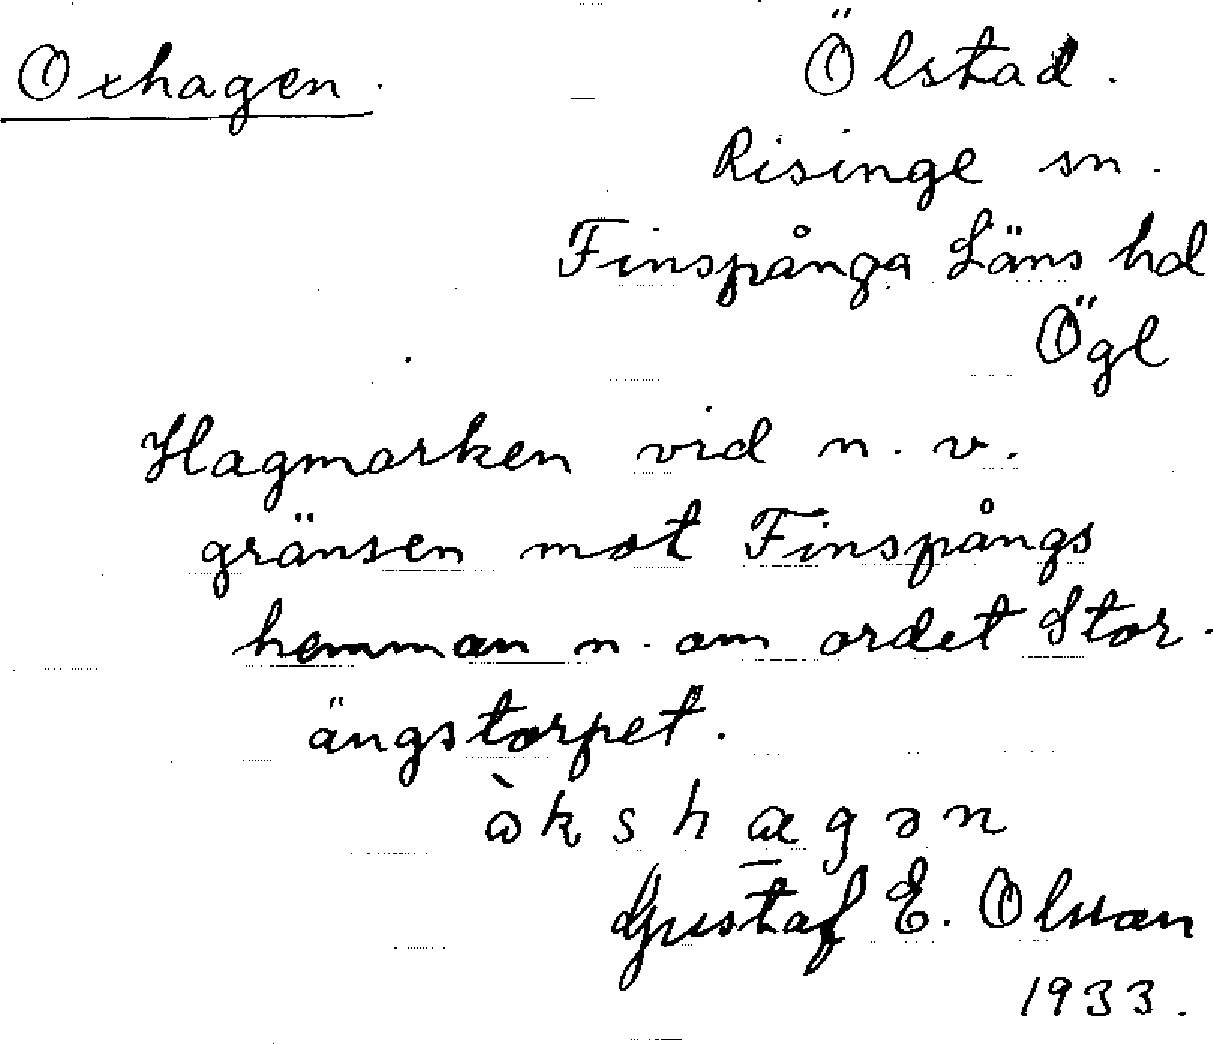 Oxhagen. Ölstad.
Risinge sn.
Finspånga Läns hd
Ögl
Hagmarken vid n. v.
gränsen mot Finspångs
hemman n. om ordet Stor.
ängstorpet.
Gustaf E. Olsson
1933.